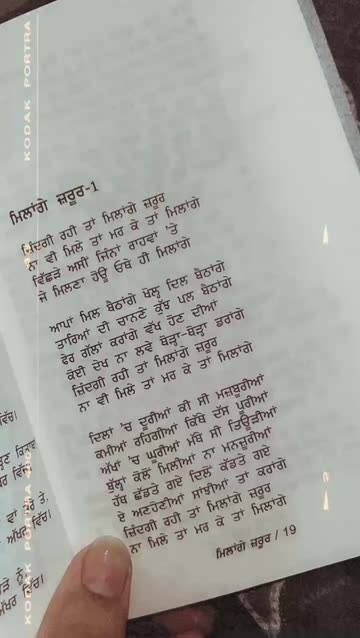 KODAK PORTRA
ਮਿਲਾਂਗੇ ਜ਼ਰੂਰ-1
ਜ਼ਿੰਦਗੀ ਰਹੀ ਤਾਂ ਮਿਲਾਂਗੇ ਜ਼ਰੂਰ
ਨਾ ਵੀ ਮਿਲੇ ਤਾਂ ਮਰ ਕੇ ਤਾਂ ਮਿਲਾਂਗੇ
ਵਿੱਛੜੇ ਅਸੀਂ ਜਿੰਨਾਂ ਰਾਹਵਾਂ 'ਤੇ
ਜੇ ਮਿਲਣਾ ਹੋਊ ਓਥੇ ਹੀ ਮਿਲਾਂਗੇ
ਆਪਾਂ ਮਿਲ ਬੈਠਾਂਗੇ ਖੋਲ੍ਹ ਦਿਲ ਬੈਠਾਂਗੇ
ਤਾਰਿਆਂ ਦੀ ਚਾਨਣੇ ਕੁੱਝ ਪਲ ਬੈਠਾਂਗੇ
ਫੇਰ ਗੱਲਾਂ ਕਰਾਂਗੇ ਵੱਖ ਹੋਣ ਦੀਆਂ
ਕੋਈ ਦੇਖ ਨਾ ਲਵੇ ਥੋੜ੍ਹਾ-ਥੋੜ੍ਹਾ ਡਰਾਂਗੇ
ਜ਼ਿੰਦਗੀ ਰਹੀ ਤਾਂ ਮਿਲਾਂਗੇ ਜ਼ਰੂਰ
ਨਾ ਵੀ ਮਿਲੇ ਤਾਂ ਮਰ ਕੇ ਤਾਂ ਮਿਲਾਂਗੇ
ਦਿਲਾਂ 'ਚ ਦੂਰੀਆਂ ਕੀ ਸੀ ਮਜ਼ਬੂਰੀਆਂ
ਕਮੀਆਂ ਰਹਿਗੀਆਂ ਕਿੱਥੇ ਦੱਸ ਪੂਰੀਆਂ
ਅੱਖਾਂ 'ਚ ਘੂਰੀਆਂ ਮੱਥੇ ਸੀ ਤਿਊੜੀਆਂ
ਬੁੱਲ੍ਹਾਂ ਕੋਲੋਂ ਮਿਲੀਆਂ ਨਾ ਮਨਜ਼ੂਰੀਆਂ
ਹੱਥ ਛੱਡਤੇ ਗਏ ਦਿਲੋਂ ਕੱਡਤੇ ਗਏ
ਏ ਅਣਹੋਣੀਆਂ ਸਾਖੀਆਂ ਤਾਂ ਕਰਾਂਗੇ
ਜ਼ਿੰਦਗੀ ਰਹੀ ਤਾਂ ਮਿਲਾਂਗੇ ਜ਼ਰੂਰ
ਨਾ ਮਿਲੇ ਤਾਂ ਮਰ ਕੇ ਤਾਂ ਮਿਲਾਂਗੇ
ਮਿਲਾਂਗੇ ਜ਼ਰੂਰ / 19
KODAK PORTRA